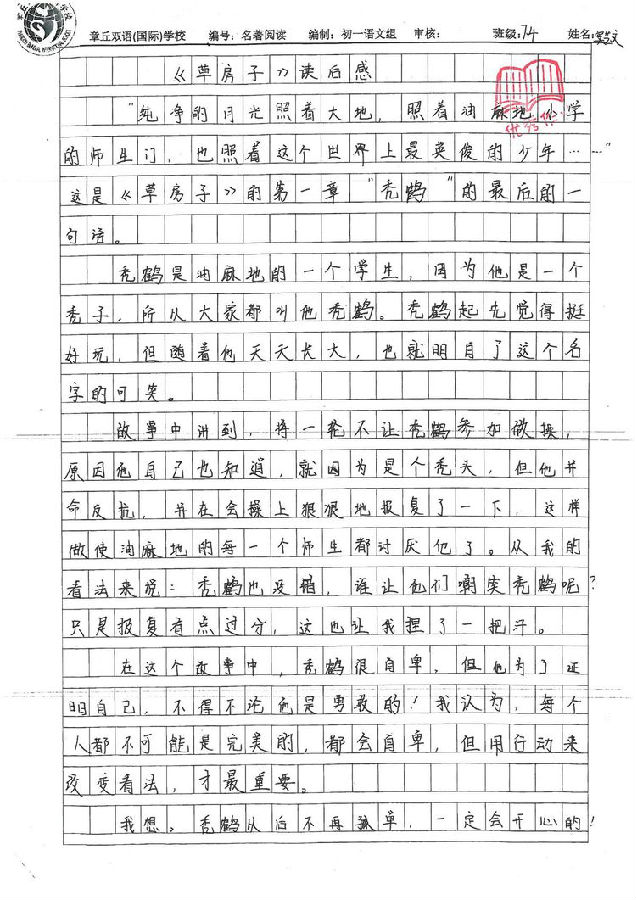 章丘双语(国际)学校 编号：名著阅读 编制：初一语文组 审核： 班级：74 姓名：
《草房子》读后感
"纯净的月光照着大地，照着油麻地小学
的师生们，也照着这个世界上最英俊的少年……"
这是《草房子》的第一章"秃鹤"的最后的一
句话。
秃鹤是油麻地的一个学生，因为他是一个
秃子，所以大家都叫他秃鹤。秃鹤起先觉得挺
好玩，但随着他天天长大，也就明白了这个名
字的可笑。
故事中讲到，蒋一轮不让秃鹤参加做操，
原因他自己也知道，就因为是个秃头，但他并
命反抗，并在会操上狠狠地报复了一下，这样
做使油麻地的每一个师生都讨厌他了。从我的
看法来说：秃鹤也没错，谁让他们嘲笑秃鹤呢？
只是报复有点过分，这也让我捏了一把汗。
在这个故事中，秃鹤很自卑，但他为了证
明自己，不得不说他是勇敢的！我认为，每个
人都不可能是完美的，都会自卑，但用行动来
改变看法，才最重要。
我想。秃鹤从后不再孤单，一定会开心的！